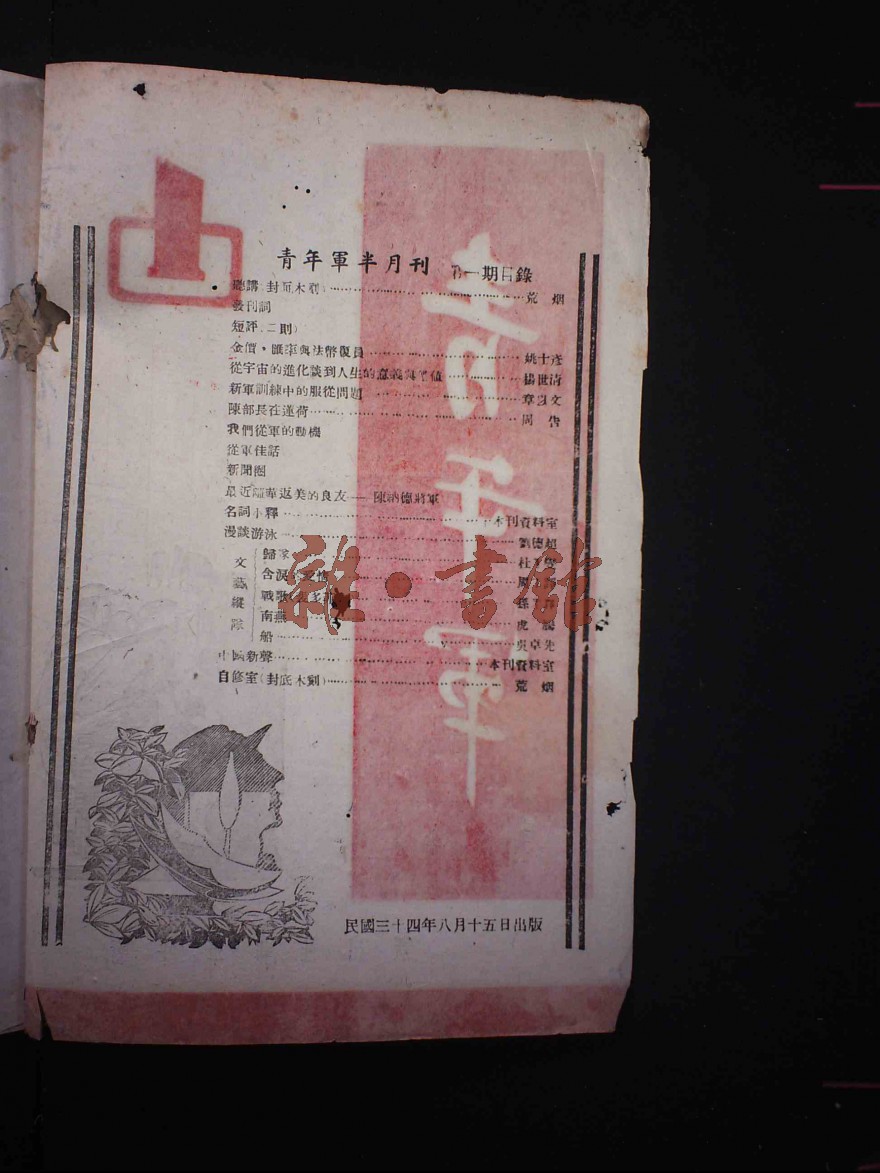 青年軍半月刊 第一期目錄
聽講(封面木刻)……荒 烟
發刊詞
短評(二則)
金價・匯率與法幣復員……姚士彥
從宇宙的進化談到人生的意義與價值……楊世清
新軍訓練中的服從問題……章 文
陳部長在蓮荷……周 告
我們從軍的動機
從軍佳話
新聞圈
最近離華返美的良友——陳納德將軍
名詞小釋……本刊資料室
漫談游泳……劉德超
文藝縱隊
歸家……杜
含淚……周
戰歌……孫
南燕……虎
船……吳卓先
中國新聲……本刊資料室
自修室(封底木刻)……荒 烟
民國三十四年八月十五日出版
青年軍
雜・書館